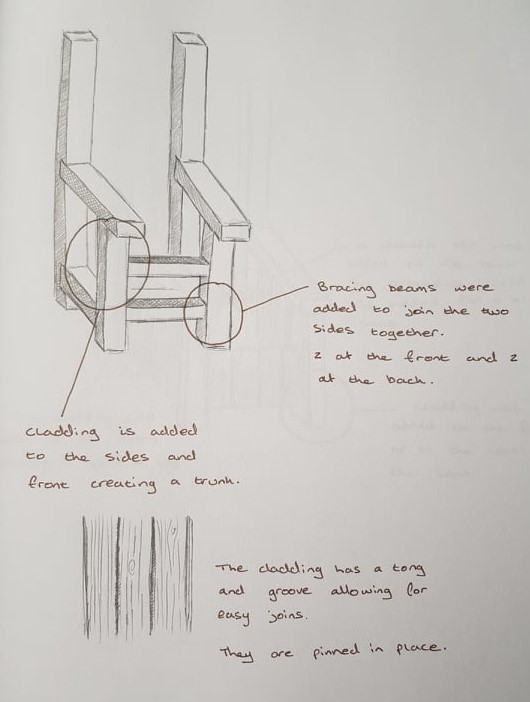 Bracing beams were
added to join the two
sides together.
2 at the front and 2
at the back.
cladding is added
to the sides and
front creating a trunk.
The cladding has a tong
and groove allowing for
easy joins.
They are pinned in place.